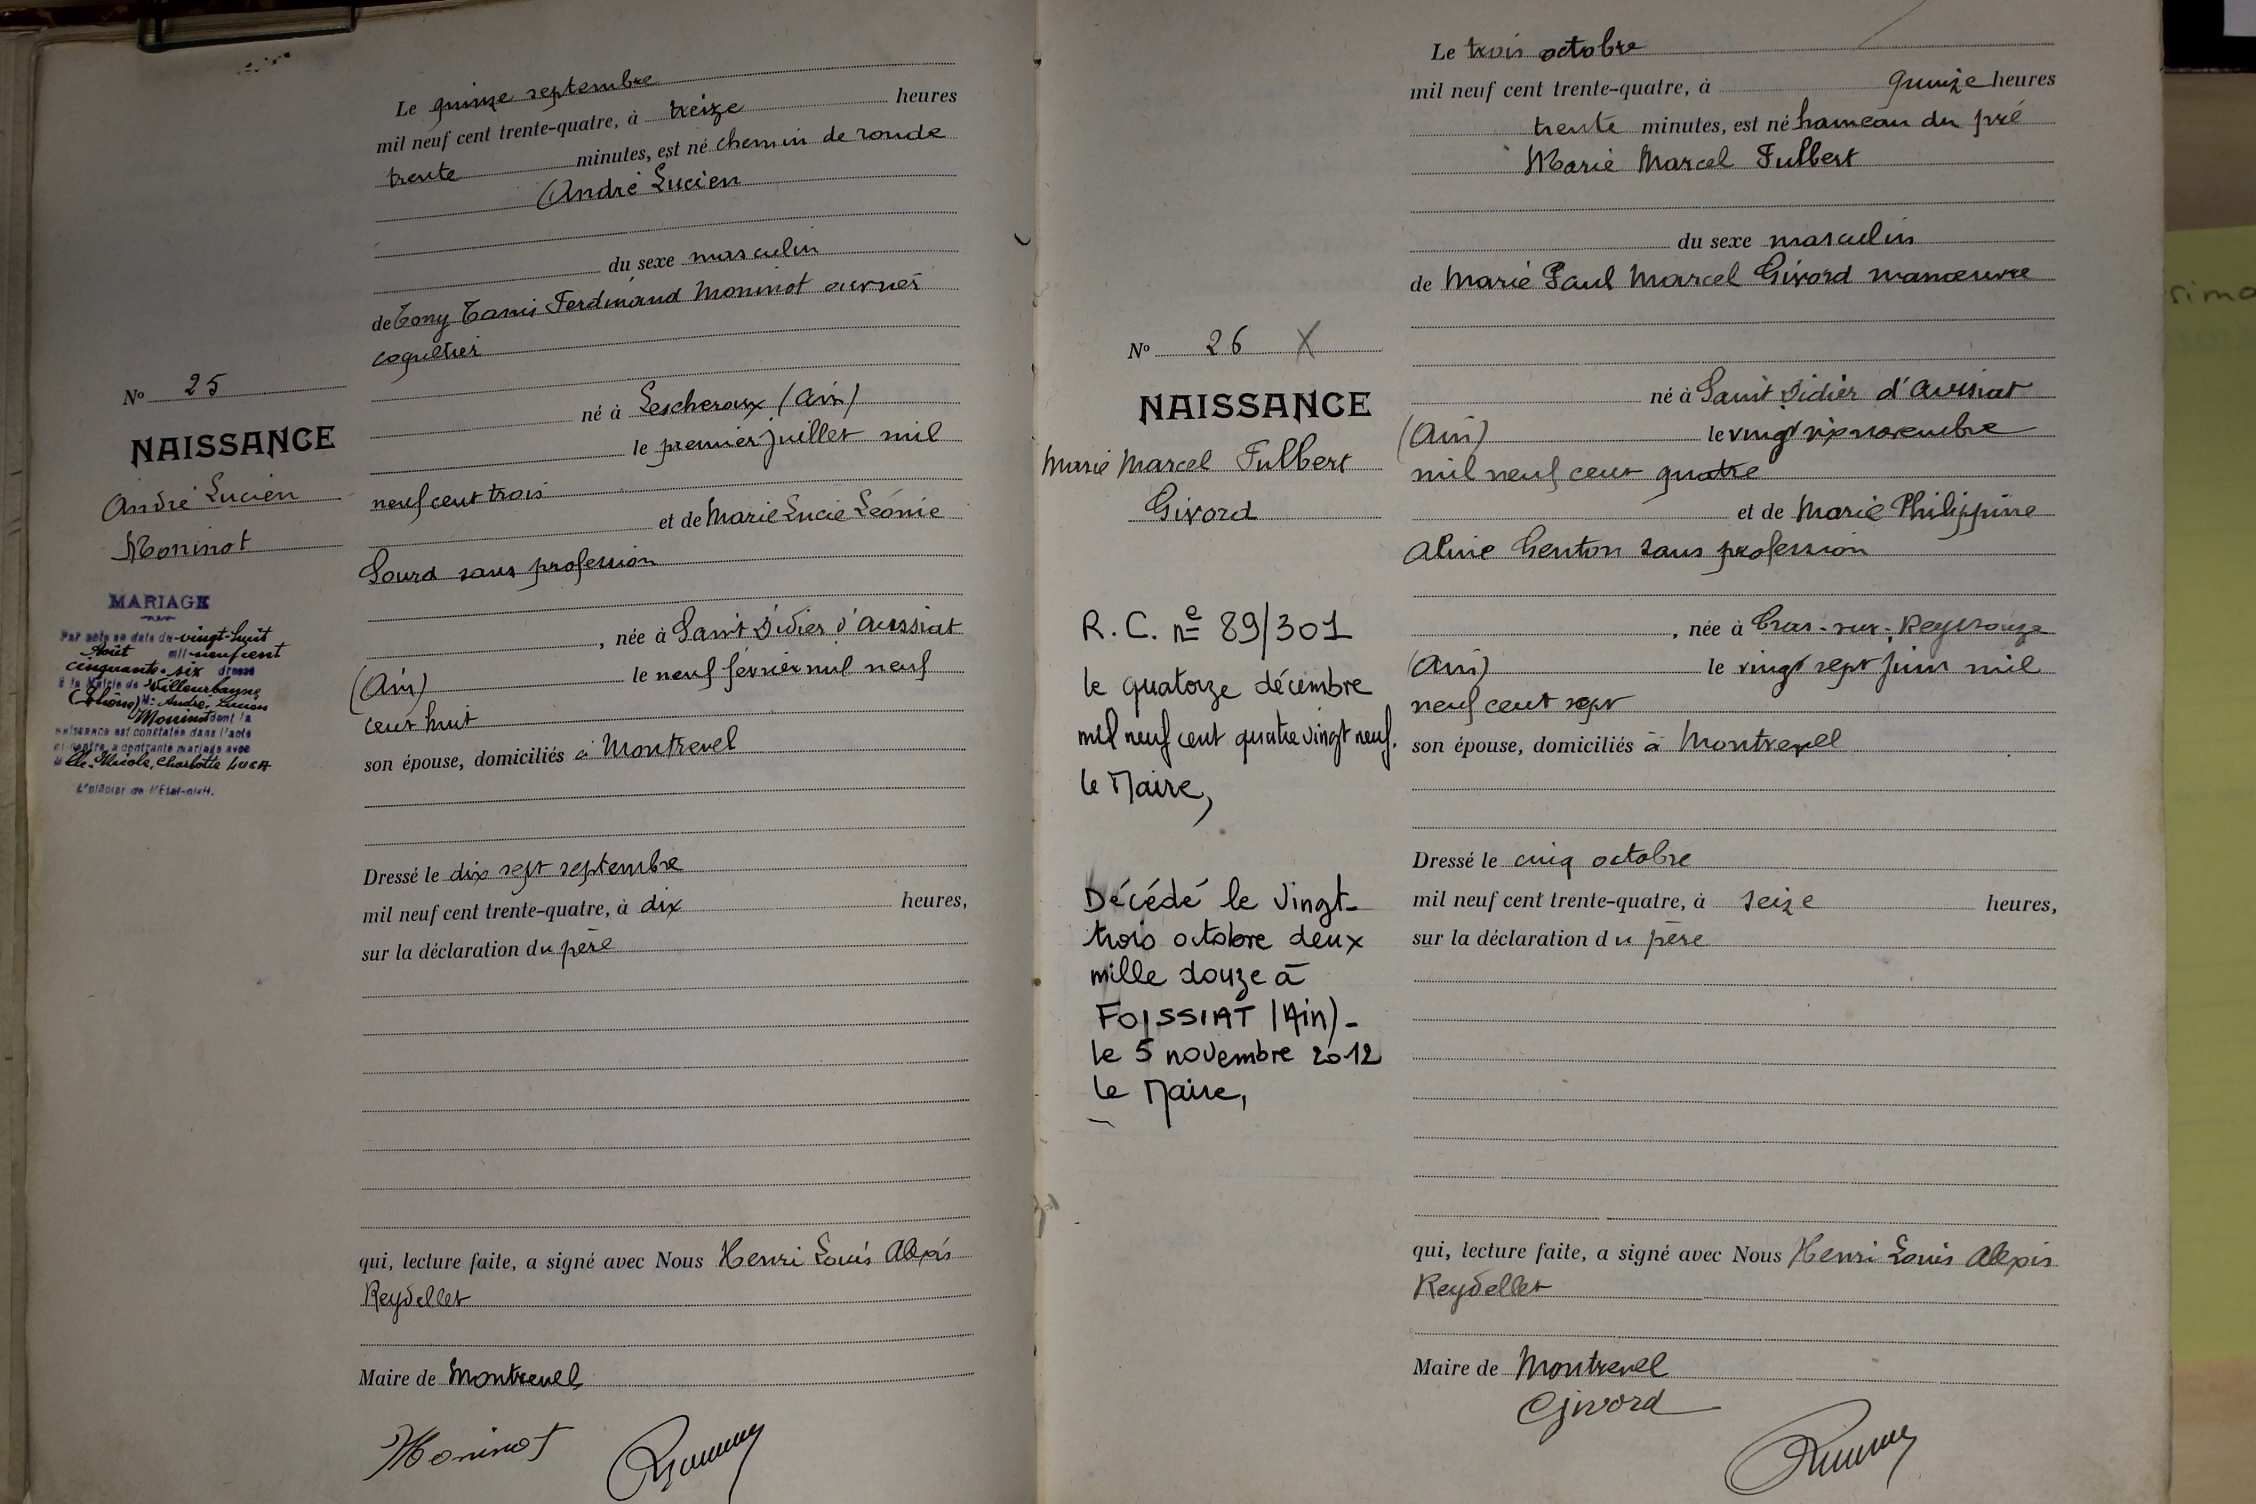 Le quinze septembre
mil neuf cent trente-quatre, à treize heures
trente minutes, est né chemin de ronde
André Lucien
du sexe masculin
de Tony Tanis Ferdinand Moninot ouvrier
coquetier
né à Lescheroux (Ain)
le premier juillet mil
neuf cent trois
et de Marie Lucie Léonie
Sourd sans profession
, née à Saint Didier d'Aussiat
(Ain) le neuf février mil neuf
cent huit
son épouse, domiciliés à Montrevel
Dressé le dix sept septembre
mil neuf cent trente-quatre, à dix heures,
sur la déclaration du père
qui, lecture faite, a signé avec Nous Henri Louis Alexis
Reydellet
Maire de Montrevel
Moninot
No 25
NAISSANCE
André Lucien
Moninot
MARIAGE
Par acte en date du vingt-huit
Août mil neuf cent
cinquante-six dressé
à la Mairie de Villeurbanne
(Rhône) Mr André, Lucien
Moninot dont la
naissance est constatée dans l'acte
ci-contre, a contracté mariage avec
Mlle Nicole, Charlotte LUCA
L'officier de l'Etat-civil.
Le trois octobre
mil neuf cent trente-quatre, à quinze heures
trente minutes, est né hameau du pré
Marie Marcel Fulbert
du sexe masculin
de Marie Paul Marcel Givord manœuvre
né à Saint Didier d'Aussiat
(Ain) le vingt six novembre
mil neuf cent quatre
et de Marie Philippine
Aline Genton sans profession
, née à Cras-sur-Reyssouze
(Ain) le vingt sept juin mil
neuf cent sept
son épouse, domiciliés à Montrevel
Dressé le cinq octobre
mil neuf cent trente-quatre, à seize heures,
sur la déclaration du père
qui, lecture faite, a signé avec Nous Henri Louis Alexis
Reydellet
Maire de Montrevel
Givord
No 26 X
NAISSANCE
Marie Marcel Fulbert
Givord
R.C. ne 89/301
le quatorze décembre
mil neuf cent quatre vingt neuf.
le Maire,
Décédé le vingt-
trois octobre deux
mille douze à
FOISSIAT (Ain)-
le 5 novembre 2012
le Maire,